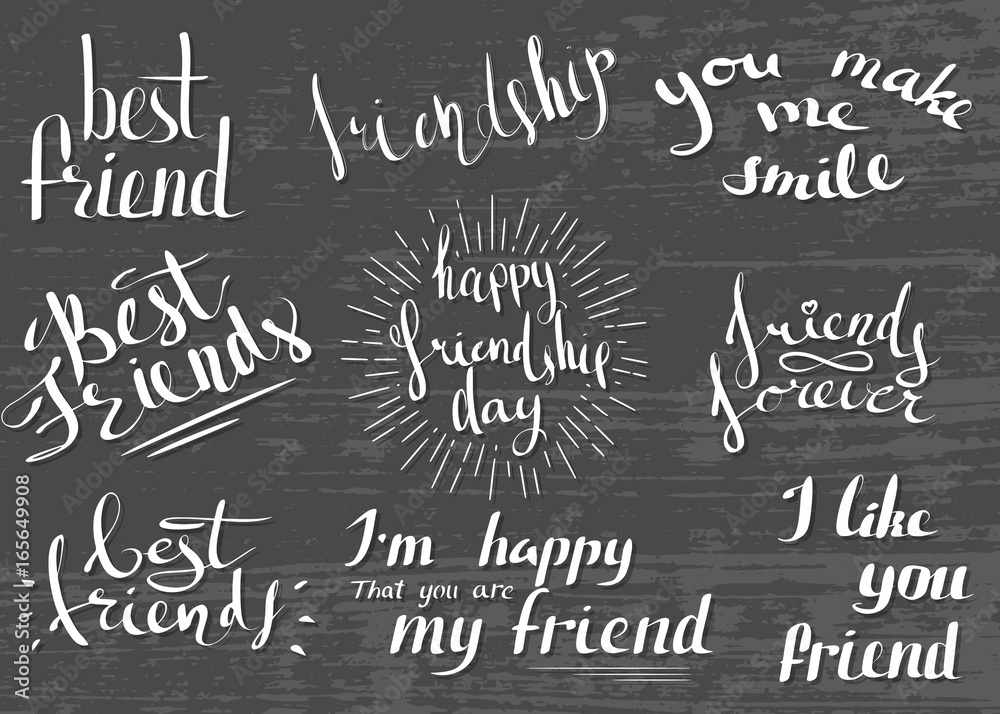 best
friend
friendship
you make
me
smile
Best
Friends
happy
friendship
day
friends
forever
best
friends
I'm happy
That you are
my friend
I like
you
friend
Adobe Stock | #165649908